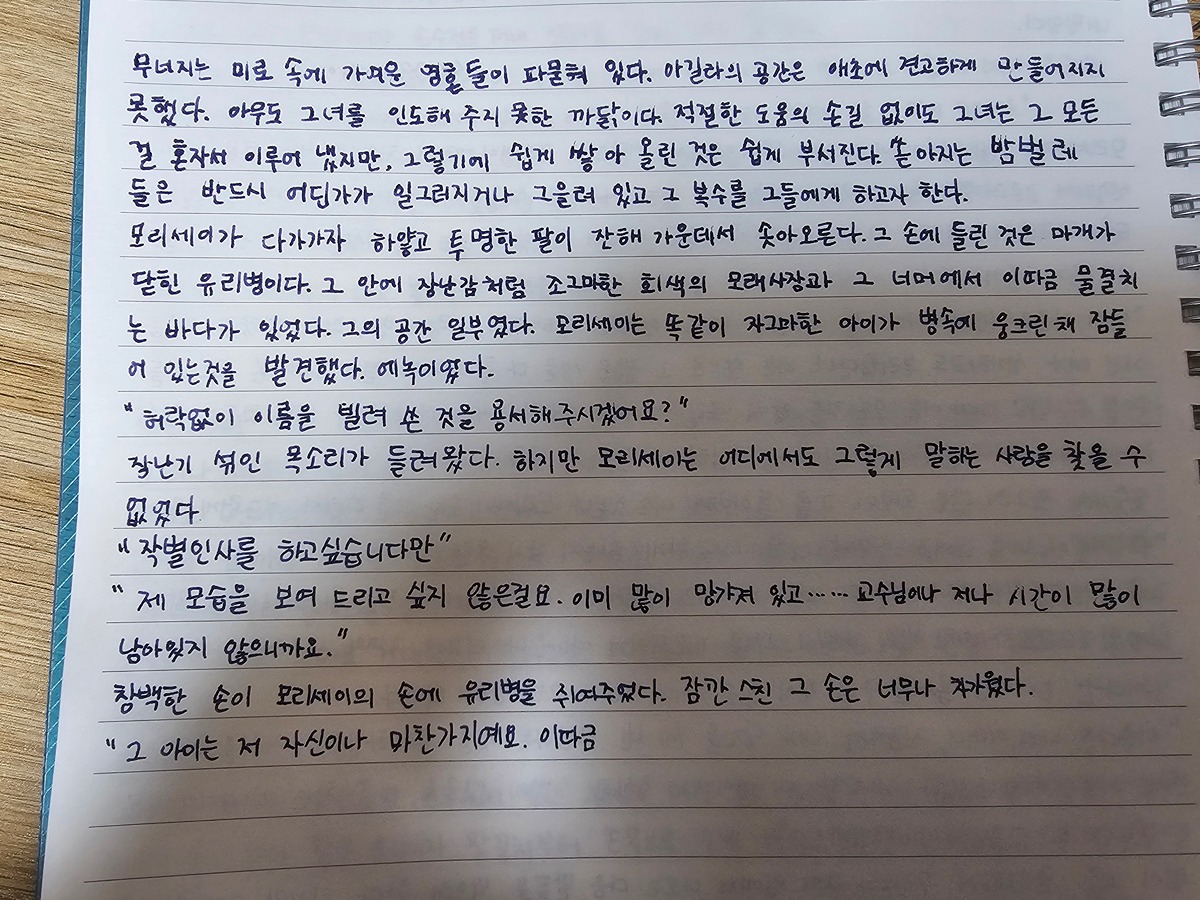 무너지는 미로 속에 가여운 영혼들이 파묻혀 있다. 아길라의 공간은 애초에 견고하게 만들어지지
못했다. 아무도 그녀를 인도해 주지 못한 까닭이다. 적절한 도움의 손길 없이도 그녀는 그 모든
걸 혼자서 이루어 냈지만, 그렇기에 쉽게 쌓아 올린 것은 쉽게 부서진다. 쏟아지는 밤벌레
들은 반드시 어딘가가 일그러지거나 그을려 있고 그 복수를 그들에게 하고자 한다.
모리세이가 다가가자 하얗고 투명한 팔이 잔해 가운데서 솟아오른다. 그 손에 들린 것은 마개가
닫힌 유리병이다. 그 안에 장난감처럼 조그마한 회색의 모래사장과 그 너머에서 이따금 물결치
는 바다가 있었다. 그의 공간 일부였다. 모리세이는 똑같이 자그마한 아이가 병속에 웅크린채 잠들
어 있는것을 발견했다. 에녹이었다.
"허락없이 이름을 빌려 쓴 것을 용서해주시겠어요?"
장난기 섞인 목소리가 들려왔다. 하지만 모리세이는 어디에서도 그렇게 말하는 사람을 찾을 수
없었다
"작별인사를 하고싶습니다만"
"제 모습을 보여 드리고 싶지 않은걸요. 이미 많이 망가져 있고…… 교수님이나 저나 시간이 많이
남아있지 않으니까요."
창백한 손이 모리세이의 손에 유리병을 쥐여주었다. 잠깐 스친 그 손은 너무나 차가웠다.
"그 아이는 저 자신이나 마찬가지예요. 이따금